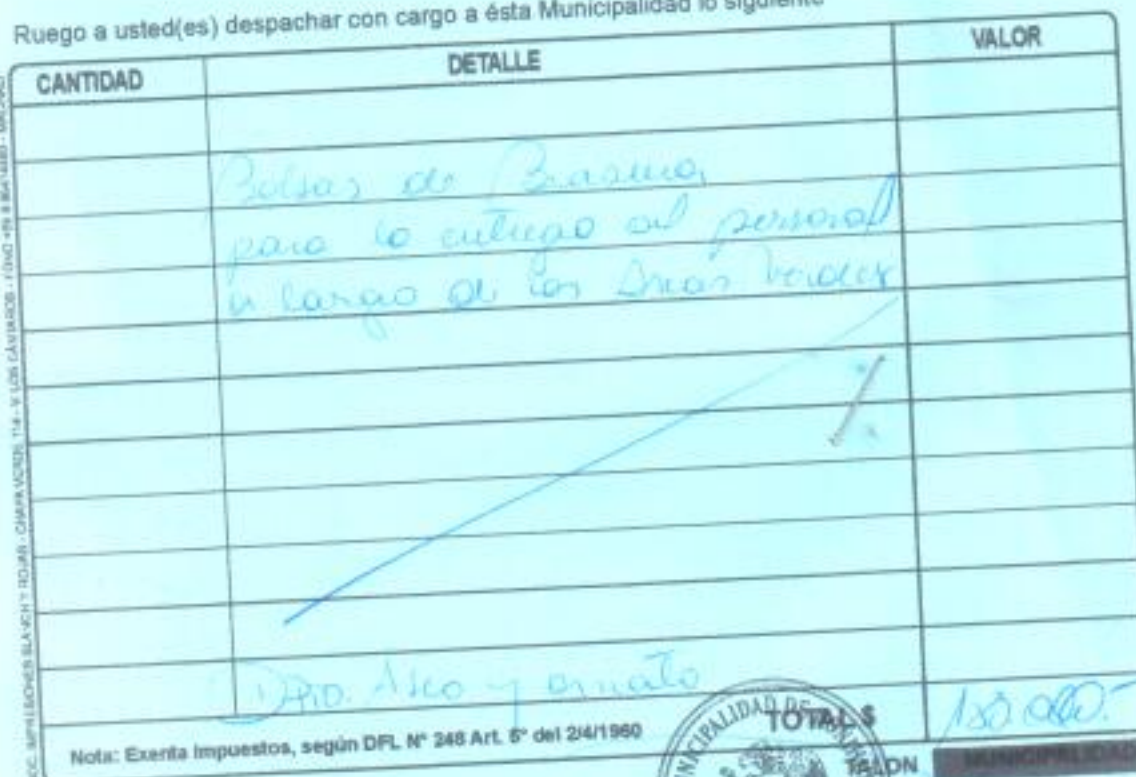 Ruego a usted(es) despachar con cargo a ésta Municipalidad lo siguiente
CANTIDAD DETALLE VALOR
Bolsas de Basura,
para la entrega al personal
a cargo de las Areas Verdes
Dpto. Aseo y ornato
TOTAL $
Nota: Exenta Impuestos, según DFL N° 248 Art. 5° del 2/4/1960
MUNICIPALIDAD